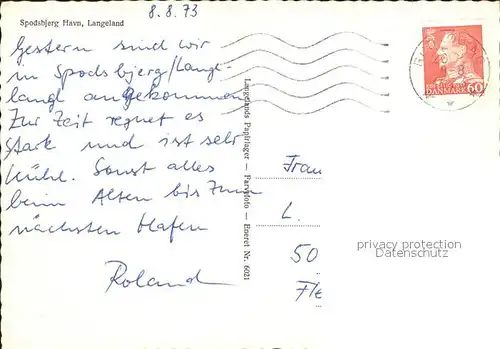 8.8.73
Spodsbjerg Havn, Langeland
Gestern sind wir
in Spodsbjerg/Langl
langl angekommen
Zur Zeit regnet es
stark und ist sehr
kühl. Sonst alles
beim Alten bis zum
nächsten Hafen
Roland
Langelands Papirlager — Farvefoto — Eneret Nr. 6021
DANMARK 60
Frau
L.
50
Fle
privacy protection
Datenschutz